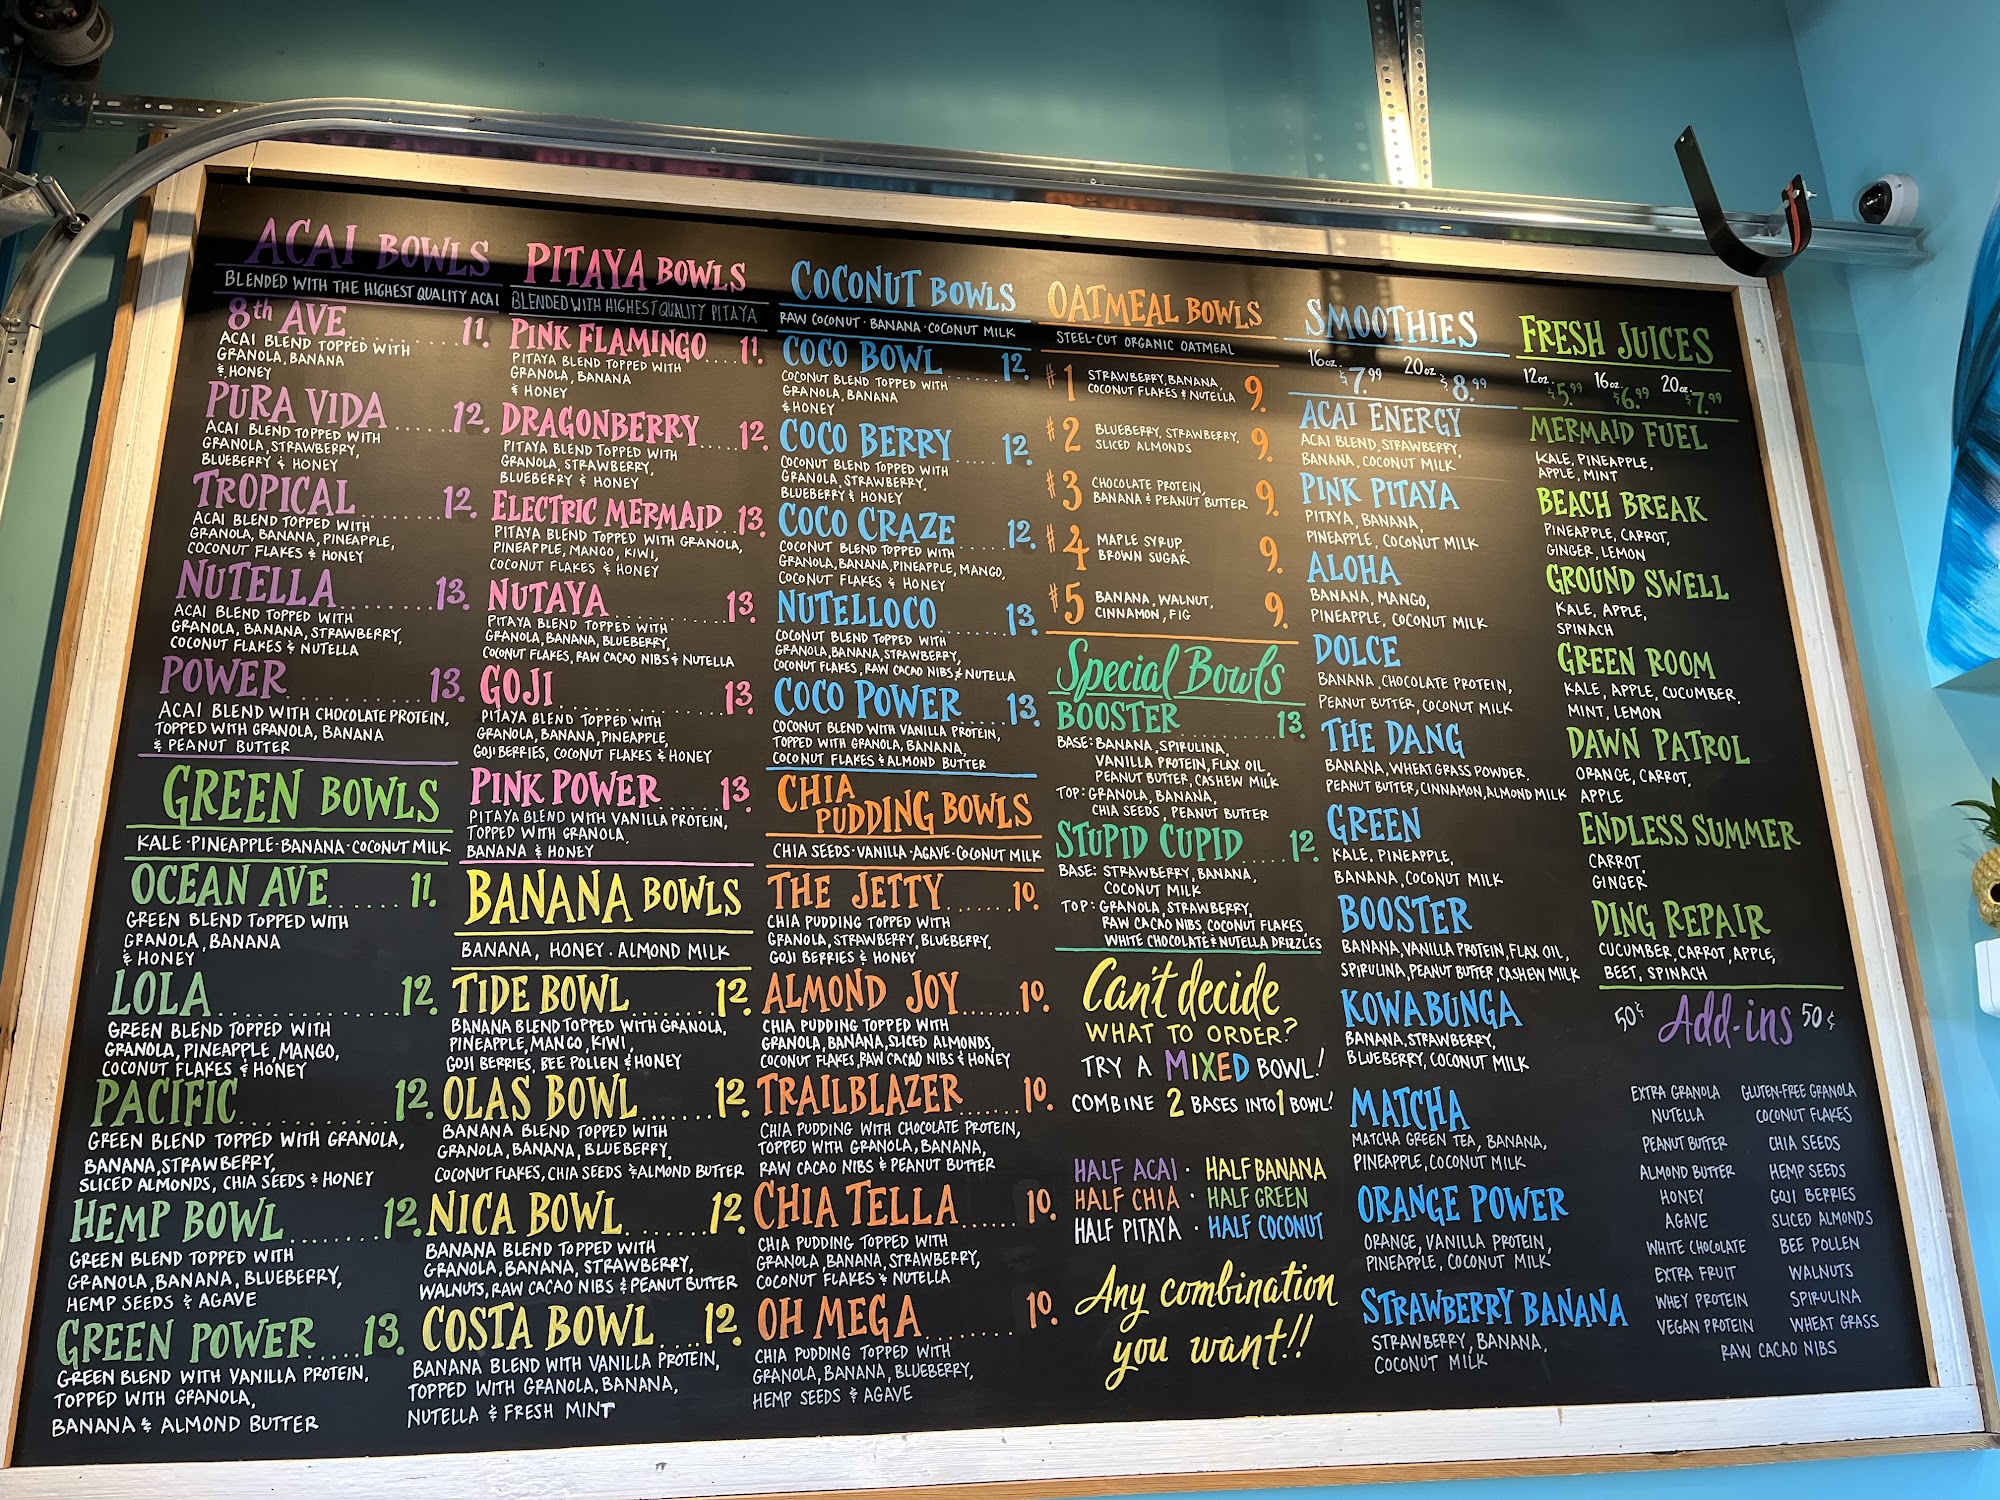 ACAI BOWLS
BLENDED WITH THE HIGHEST QUALITY ACAI
8th AVE.......... 11.
ACAI BLEND TOPPED WITH
GRANOLA, BANANA
& HONEY
PURA VIDA....... 12.
ACAI BLEND TOPPED WITH
GRANOLA, STRAWBERRY,
BLUEBERRY & HONEY
TROPICAL......... 12.
ACAI BLEND TOPPED WITH
GRANOLA, BANANA, PINEAPPLE,
COCONUT FLAKES & HONEY
NUTELLA......... 13.
ACAI BLEND TOPPED WITH
GRANOLA, BANANA, STRAWBERRY,
COCONUT FLAKES & NUTELLA
POWER........... 13.
ACAI BLEND WITH CHOCOLATE PROTEIN,
TOPPED WITH GRANOLA, BANANA
& PEANUT BUTTER
GREEN BOWLS
KALE · PINEAPPLE · BANANA · COCONUT MILK
OCEAN AVE...... 11.
GREEN BLEND TOPPED WITH
GRANOLA, BANANA
& HONEY
LOLA............. 12.
GREEN BLEND TOPPED WITH
GRANOLA, PINEAPPLE, MANGO,
COCONUT FLAKES & HONEY
PACIFIC........... 12.
GREEN BLEND TOPPED WITH GRANOLA,
BANANA, STRAWBERRY,
SLICED ALMONDS, CHIA SEEDS & HONEY
HEMP BOWL........ 12.
GREEN BLEND TOPPED WITH
GRANOLA, BANANA, BLUEBERRY,
HEMP SEEDS & AGAVE
GREEN POWER.... 13.
GREEN BLEND WITH VANILLA PROTEIN,
TOPPED WITH GRANOLA,
BANANA & ALMOND BUTTER
PITAYA BOWLS
BLENDED WITH HIGHEST QUALITY PITAYA
PINK FLAMINGO.... 11.
PITAYA BLEND TOPPED WITH
GRANOLA, BANANA
& HONEY
DRAGONBERRY.... 12.
PITAYA BLEND TOPPED WITH
GRANOLA, STRAWBERRY,
BLUEBERRY & HONEY
ELECTRIC MERMAID 13.
PITAYA BLEND TOPPED WITH GRANOLA,
PINEAPPLE, MANGO, KIWI,
COCONUT FLAKES & HONEY
NUTAYA.......... 13.
PITAYA BLEND TOPPED WITH
GRANOLA, BANANA, BLUEBERRY,
COCONUT FLAKES, RAW CACAO NIBS & NUTELLA
GOJI.............. 13.
PITAYA BLEND TOPPED WITH
GRANOLA, BANANA, PINEAPPLE,
GOJI BERRIES, COCONUT FLAKES & HONEY
PINK POWER...... 13.
PITAYA BLEND WITH VANILLA PROTEIN,
TOPPED WITH GRANOLA,
BANANA & HONEY
BANANA BOWLS
BANANA, HONEY · ALMOND MILK
TIDE BOWL........ 12.
BANANA BLEND TOPPED WITH GRANOLA,
PINEAPPLE, MANGO, KIWI,
GOJI BERRIES, BEE POLLEN & HONEY
OLAS BOWL...... 12.
BANANA BLEND TOPPED WITH
GRANOLA, BANANA, BLUEBERRY,
COCONUT FLAKES, CHIA SEEDS & ALMOND BUTTER
NICA BOWL....... 12.
BANANA BLEND TOPPED WITH
GRANOLA, BANANA, STRAWBERRY,
WALNUTS, RAW CACAO NIBS & PEANUT BUTTER
COSTA BOWL.... 12.
BANANA BLEND WITH VANILLA PROTEIN,
TOPPED WITH GRANOLA, BANANA,
NUTELLA & FRESH MINT
COCONUT BOWLS
RAW COCONUT · BANANA · COCONUT MILK
COCO BOWL..... 12.
COCONUT BLEND TOPPED WITH
GRANOLA, BANANA
& HONEY
COCO BERRY..... 12.
COCONUT BLEND TOPPED WITH
GRANOLA, STRAWBERRY,
BLUEBERRY & HONEY
COCO CRAZE..... 12.
COCONUT BLEND TOPPED WITH
GRANOLA, BANANA, PINEAPPLE, MANGO,
COCONUT FLAKES & HONEY
NUTELLOCO....... 13.
COCONUT BLEND TOPPED WITH
GRANOLA, BANANA, STRAWBERRY,
COCONUT FLAKES, RAW CACAO NIBS & NUTELLA
COCO POWER..... 13.
COCONUT BLEND WITH VANILLA PROTEIN,
TOPPED WITH GRANOLA, BANANA,
COCONUT FLAKES & ALMOND BUTTER
CHIA
PUDDING BOWLS
CHIA SEEDS · VANILLA · AGAVE · COCONUT MILK
THE JETTY....... 10.
CHIA PUDDING TOPPED WITH
GRANOLA, STRAWBERRY, BLUEBERRY,
GOJI BERRIES & HONEY
ALMOND JOY...... 10.
CHIA PUDDING TOPPED WITH
GRANOLA, BANANA, SLICED ALMONDS,
COCONUT FLAKES, RAW CACAO NIBS & HONEY
TRAILBLAZER..... 10.
CHIA PUDDING WITH CHOCOLATE PROTEIN,
TOPPED WITH GRANOLA, BANANA,
RAW CACAO NIBS & PEANUT BUTTER
CHIA TELLA...... 10.
CHIA PUDDING TOPPED WITH
GRANOLA, BANANA, STRAWBERRY,
COCONUT FLAKES & NUTELLA
OH MEGA......... 10.
CHIA PUDDING TOPPED WITH
GRANOLA, BANANA, BLUEBERRY,
HEMP SEEDS & AGAVE
OATMEAL BOWLS
STEEL-CUT ORGANIC OATMEAL
#1 STRAWBERRY, BANANA,
COCONUT FLAKES & NUTELLA 9.
#2 BLUEBERRY, STRAWBERRY,
SLICED ALMONDS 9.
#3 CHOCOLATE PROTEIN,
BANANA & PEANUT BUTTER 9.
#4 MAPLE SYRUP,
BROWN SUGAR 9.
#5 BANANA, WALNUT,
CINNAMON, FIG 9.
Special Bowls
BOOSTER.......... 13.
BASE: BANANA, SPIRULINA,
VANILLA PROTEIN, FLAX OIL,
PEANUT BUTTER, CASHEW MILK
TOP: GRANOLA, BANANA,
CHIA SEEDS, PEANUT BUTTER
STUPID CUPID.... 12.
BASE: STRAWBERRY, BANANA,
COCONUT MILK
TOP: GRANOLA, STRAWBERRY,
RAW CACAO NIBS, COCONUT FLAKES,
WHITE CHOCOLATE & NUTELLA DRIZZLES
Can't decide
WHAT TO ORDER?
TRY A MIXED BOWL!
COMBINE 2 BASES INTO 1 BOWL!
HALF ACAI · HALF BANANA
HALF CHIA · HALF GREEN
HALF PITAYA · HALF COCONUT
Any combination
you want!!
SMOOTHIES
16oz. $7.99 20oz. $8.99
ACAI ENERGY
ACAI BLEND, STRAWBERRY,
BANANA, COCONUT MILK
PINK PITAYA
PITAYA, BANANA,
PINEAPPLE, COCONUT MILK
ALOHA
BANANA, MANGO,
PINEAPPLE, COCONUT MILK
DOLCE
BANANA, CHOCOLATE PROTEIN,
PEANUT BUTTER, COCONUT MILK
THE DANG
BANANA, WHEAT GRASS POWDER,
PEANUT BUTTER, CINNAMON, ALMOND MILK
GREEN
KALE, PINEAPPLE,
BANANA, COCONUT MILK
BOOSTER
BANANA, VANILLA PROTEIN, FLAX OIL,
SPIRULINA, PEANUT BUTTER, CASHEW MILK
KOWABUNGA
BANANA, STRAWBERRY,
BLUEBERRY, COCONUT MILK
MATCHA
MATCHA GREEN TEA, BANANA,
PINEAPPLE, COCONUT MILK
ORANGE POWER
ORANGE, VANILLA PROTEIN,
PINEAPPLE, COCONUT MILK
STRAWBERRY BANANA
STRAWBERRY, BANANA,
COCONUT MILK
FRESH JUICES
12oz. $5.99 16oz. $6.99 20oz. $7.99
MERMAID FUEL
KALE, PINEAPPLE,
APPLE, MINT
BEACH BREAK
PINEAPPLE, CARROT,
GINGER, LEMON
GROUND SWELL
KALE, APPLE,
SPINACH
GREEN ROOM
KALE, APPLE, CUCUMBER,
MINT, LEMON
DAWN PATROL
ORANGE, CARROT,
APPLE
ENDLESS SUMMER
CARROT,
GINGER
DING REPAIR
CUCUMBER, CARROT, APPLE,
BEET, SPINACH
50¢ Add-ins 50¢
EXTRA GRANOLA GLUTEN-FREE GRANOLA
NUTELLA COCONUT FLAKES
PEANUT BUTTER CHIA SEEDS
ALMOND BUTTER HEMP SEEDS
HONEY GOJI BERRIES
AGAVE SLICED ALMONDS
WHITE CHOCOLATE BEE POLLEN
EXTRA FRUIT WALNUTS
WHEY PROTEIN SPIRULINA
VEGAN PROTEIN WHEAT GRASS
RAW CACAO NIBS